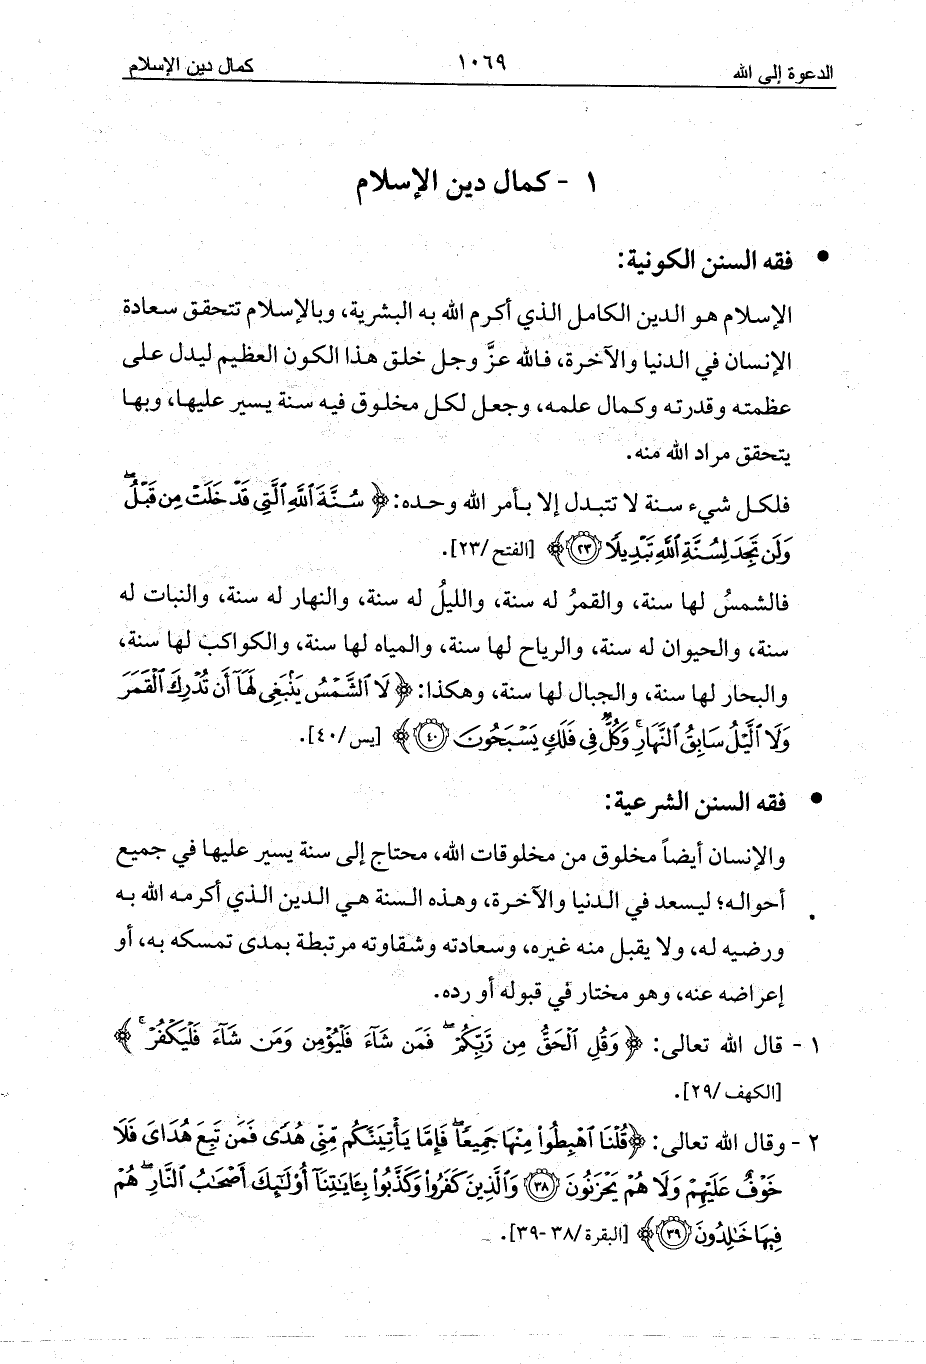 الدعوة إلى الله
١٠٦٩
كمال دين الإسلام
١ - كمال دين الإسلام
• فقه السنن الكونية:
الإسلام هو الدين الكامل الذي أكرم الله به البشرية، وبالإسلام تتحقق سعادة
الإنسان في الدنيا والآخرة، فالله عزَّ وجل خلق هذا الكون العظيم ليدل على
عظمته وقدرته وكمال علمه، وجعل لكل مخلوق فيه سنة يسير عليها، وبها
يتحقق مراد الله منه.
فلكل شيء سنة لا تتبدل إلا بأمر الله وحده: ﴿ سُنَّةَ ٱللَّهِ ٱلَّتِى قَدْ خَلَتْ مِن قَبْلُ ۖ
وَلَن تَجِدَ لِسُنَّةِ ٱللَّهِ تَبْدِيلًا ٢٣ ﴾ [الفتح/٢٣].
فالشمسُ لها سنة، والقمرُ له سنة، والليلُ له سنة، والنهار له سنة، والنبات له
سنة، والحيوان له سنة، والرياح لها سنة، والمياه لها سنة، والكواكب لها سنة،
والبحار لها سنة، والجبال لها سنة، وهكذا: ﴿ لَا ٱلشَّمْسُ يَنۢبَغِى لَهَآ أَن تُدْرِكَ ٱلْقَمَرَ
وَلَا ٱلَّيْلُ سَابِقُ ٱلنَّهَارِ ۚ وَكُلٌّ فِى فَلَكٍ يَسْبَحُونَ ٤٠ ﴾ [يس/٤٠].
• فقه السنن الشرعية:
والإنسان أيضاً مخلوق من مخلوقات الله، محتاج إلى سنة يسير عليها في جميع
أحواله؛ ليسعد في الدنيا والآخرة، وهذه السنة هي الدين الذي أكرمه الله به
ورضيه له، ولا يقبل منه غيره، وسعادته وشقاوته مرتبطة بمدى تمسكه به، أو
إعراضه عنه، وهو مختار في قبوله أو رده.
١ - قال الله تعالى: ﴿ وَقُلِ ٱلْحَقُّ مِن رَّبِّكُمْ ۖ فَمَن شَآءَ فَلْيُؤْمِن وَمَن شَآءَ فَلْيَكْفُرْ ۚ ﴾
[الكهف/٢٩].
٢ - وقال الله تعالى: ﴿ قُلْنَا ٱهْبِطُوا۟ مِنْهَا جَمِيعًا ۖ فَإِمَّا يَأْتِيَنَّكُم مِّنِّى هُدًى فَمَن تَبِعَ هُدَاىَ فَلَا
خَوْفٌ عَلَيْهِمْ وَلَا هُمْ يَحْزَنُونَ ٣٨ وَٱلَّذِينَ كَفَرُوا۟ وَكَذَّبُوا۟ بِـَٔايَـٰتِنَآ أُو۟لَـٰٓئِكَ أَصْحَـٰبُ ٱلنَّارِ ۖ هُمْ
فِيهَا خَـٰلِدُونَ ٣٩ ﴾ [البقرة/٣٨-٣٩].